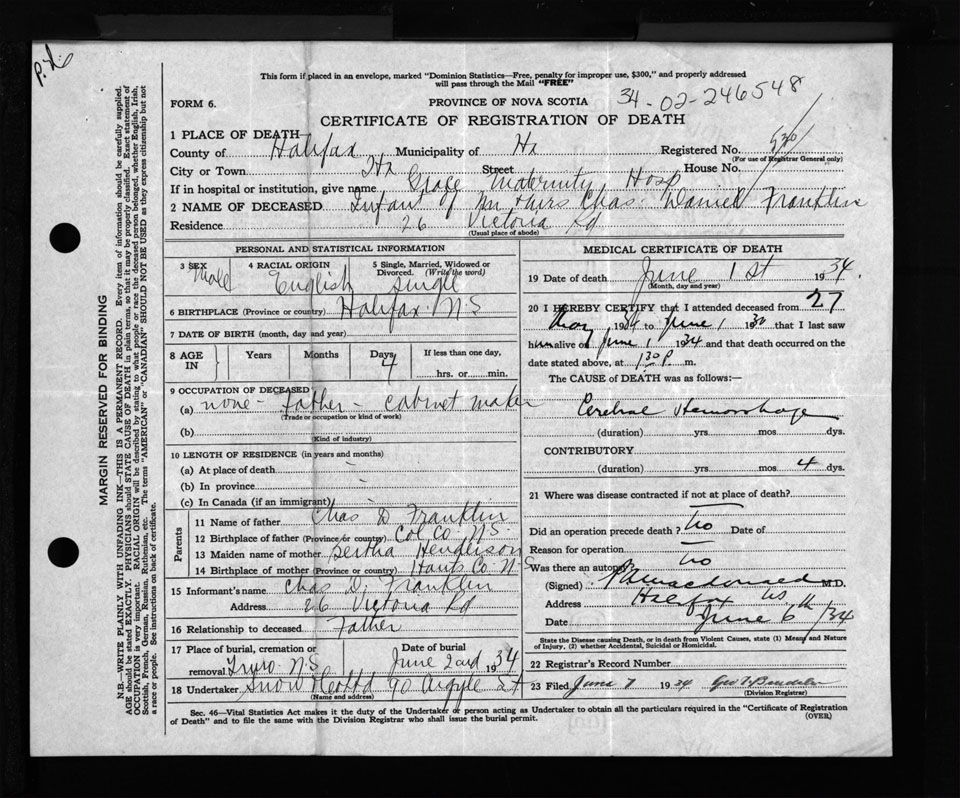 P.d.
This form if placed in an envelope, marked "Dominion Statistics—Free, penalty for improper use, $300," and properly addressed
will pass through the Mail "FREE"
FORM 6.
PROVINCE OF NOVA SCOTIA
34-02-246548
CERTIFICATE OF REGISTRATION OF DEATH
1 PLACE OF DEATH
County of Halifax Municipality of Hx Registered No. 530
(For use of Registrar General only)
City or Town Hx Street House No.
If in hospital or institution, give name Grace Maternity Hosp
2 NAME OF DECEASED Infant of Mr & Mrs Chas. Daniel Franklin
Residence 26 Victoria Rd
(Usual place of abode)
PERSONAL AND STATISTICAL INFORMATION
3 SEX Male
4 RACIAL ORIGIN English
5 Single, Married, Widowed or Divorced. (Write the word) Single
6 BIRTHPLACE (Province or country) Halifax N.S
7 DATE OF BIRTH (month, day and year)
8 AGE IN Years Months Days 4 If less than one day, hrs. or min.
9 OCCUPATION OF DECEASED
(a) none - father - cabinet maker
(Trade or occupation or kind of work)
(b)
(Kind of industry)
10 LENGTH OF RESIDENCE (in years and months)
(a) At place of death -
(b) In province -
(c) In Canada (if an immigrant) -
Parents
11 Name of father Chas D Franklin
12 Birthplace of father (Province or country) Col Co N.S.
13 Maiden name of mother Bertha Henderson
14 Birthplace of mother (Province or country) Hants Co N-S
15 Informant's name Chas D. Franklin
Address 26 Victoria Rd
16 Relationship to deceased Father
17 Place of burial, cremation or removal Truro N.S Date of burial June 2nd 1934
18 Undertaker Snow & Co Ltd 90 Argyle St
(Name and address)
MEDICAL CERTIFICATE OF DEATH
19 Date of death June 1st 1934.
(Month, day and year)
20 I HEREBY CERTIFY that I attended deceased from 27
May 1934 to June 1 1930 that I last saw
him alive on June 1 1934 and that death occurred on the
date stated above, at 1 30 P. m.
The CAUSE of DEATH was as follows:—
Cerebral Hemorrhage
(duration) yrs. mos. dys.
CONTRIBUTORY
(duration) yrs. mos. 4 dys.
21 Where was disease contracted if not at place of death?
Did an operation precede death? no Date of
Reason for operation
Was there an autopsy no
(Signed) Macdonald M.D.
Address Halifax NS
Date June 6th/34
State the Disease causing Death, or in death from Violent Causes, state (1) Means and Nature
of Injury, (2) whether Accidental, Suicidal or Homicidal.
22 Registrar's Record Number
23 Filed June 7 1934
(Division Registrar)
Sec. 46—Vital Statistics Act makes it the duty of the Undertaker or person acting as Undertaker to obtain all the particulars required in the "Certificate of Registration
of Death" and to file the same with the Division Registrar who shall issue the burial permit.
(OVER)
MARGIN RESERVED FOR BINDING
N.B.—WRITE PLAINLY WITH UNFADING INK—THIS IS A PERMANENT RECORD. Every item of information should be carefully supplied.
AGE should be stated EXACTLY. PHYSICIANS should STATE CAUSE OF DEATH in plain terms, so that it may be properly classified. Exact statement of
OCCUPATION is very important. RACIAL ORIGIN will be described by stating to what people or race the deceased person belonged, whether English, Irish,
Scottish, French, German, Russian, Ruthenian, etc. The terms "AMERICAN" or "CANADIAN" SHOULD NOT BE USED as they express citizenship but not
a race or people. See instructions on back of certificate.